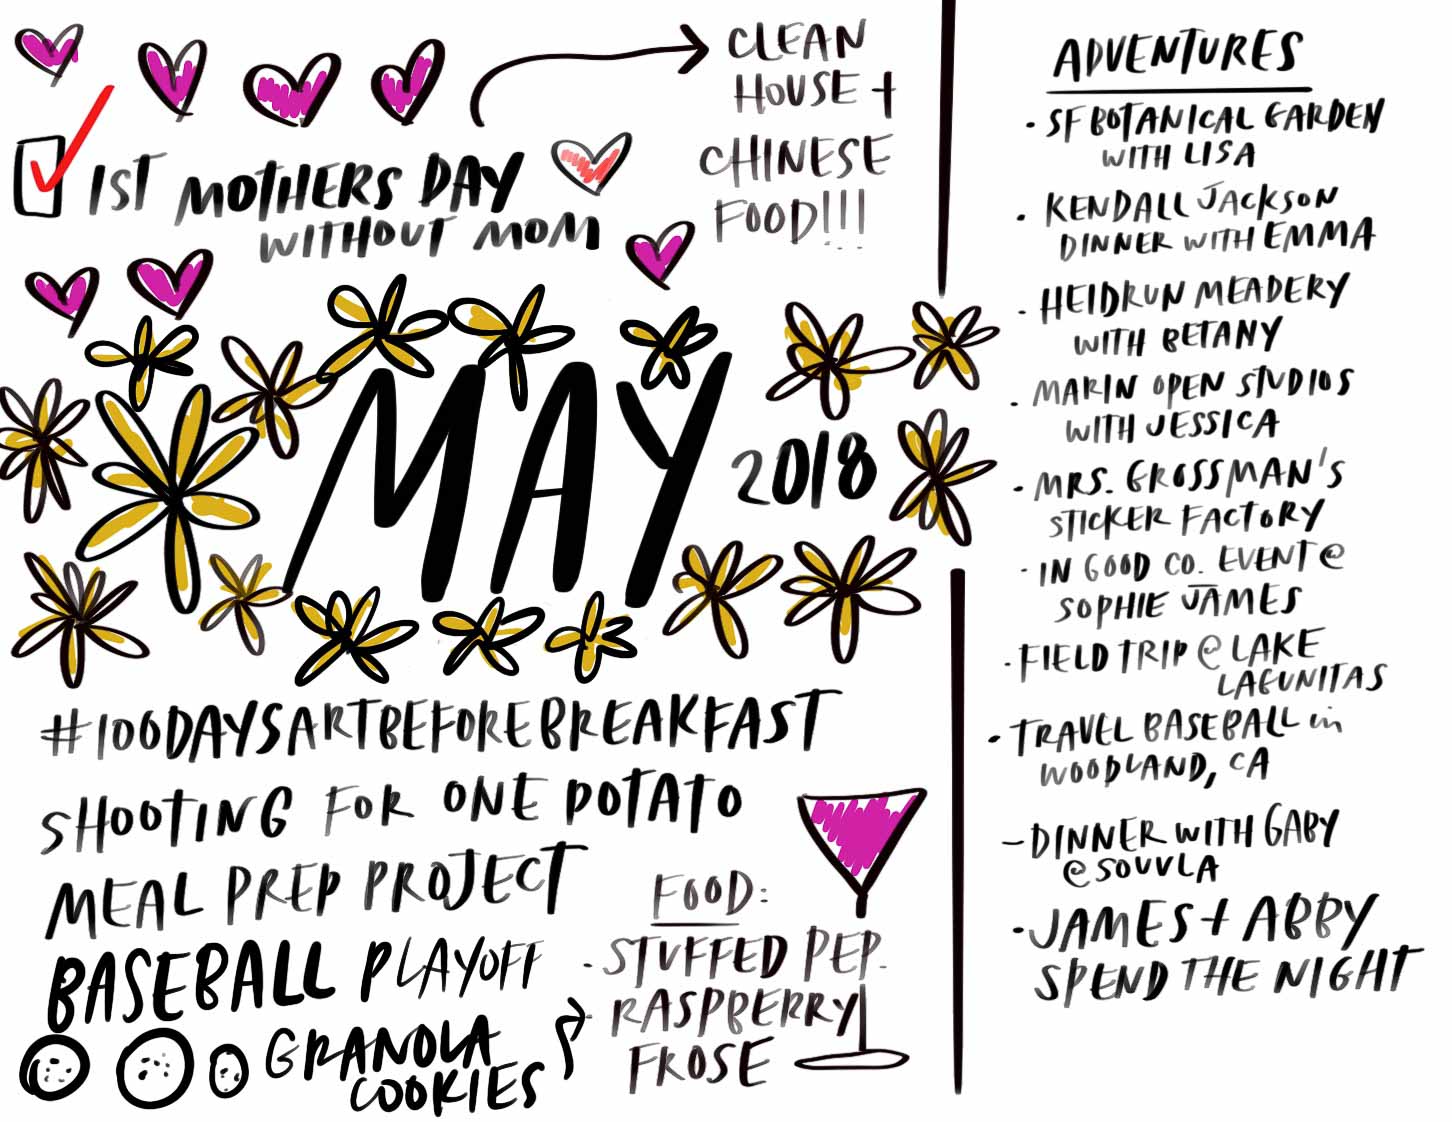 CLEAN
HOUSE +
CHINESE
FOOD!!!
1ST MOTHERS DAY
WITHOUT MOM
MAY
2018
#100DAYSARTBEFOREBREAKFAST
SHOOTING FOR ONE POTATO
MEAL PREP PROJECT
BASEBALL PLAYOFF
GRANOLA
COOKIES
FOOD:
- STUFFED PEP.
- RASPBERRY
FROSE
ADVENTURES
• SF BOTANICAL GARDEN
WITH LISA
• KENDALL JACKSON
DINNER WITH EMMA
• HEIDRUN MEADERY
WITH BETANY
• MARIN OPEN STUDIOS
WITH JESSICA
• MRS. GROSSMAN'S
STICKER FACTORY
• IN GOOD CO. EVENT @
SOPHIE JAMES
• FIELD TRIP @ LAKE
LAGUNITAS
• TRAVEL BASEBALL in
WOODLAND, CA
- DINNER WITH GABY
@ SOUVLA
• JAMES + ABBY
SPEND THE NIGHT